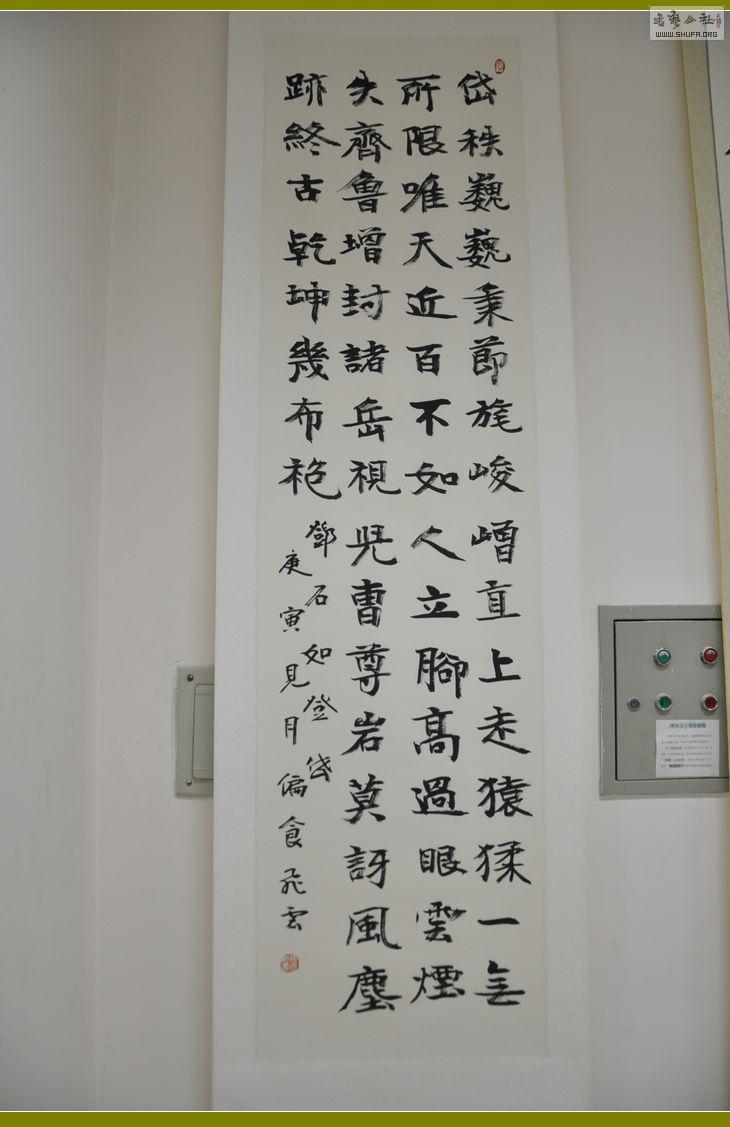 岱秩巍巍秉節旄峻嶒直上走猿猱一無
所限唯天近百不如人立腳高過眼雲煙
失齊魯增封諸岳視兒曹尊岩莫訝風塵
跡終古乾坤幾布袍
鄧石如登岱
庚寅見月偏食飛雲
WWW.SHUFA.ORG